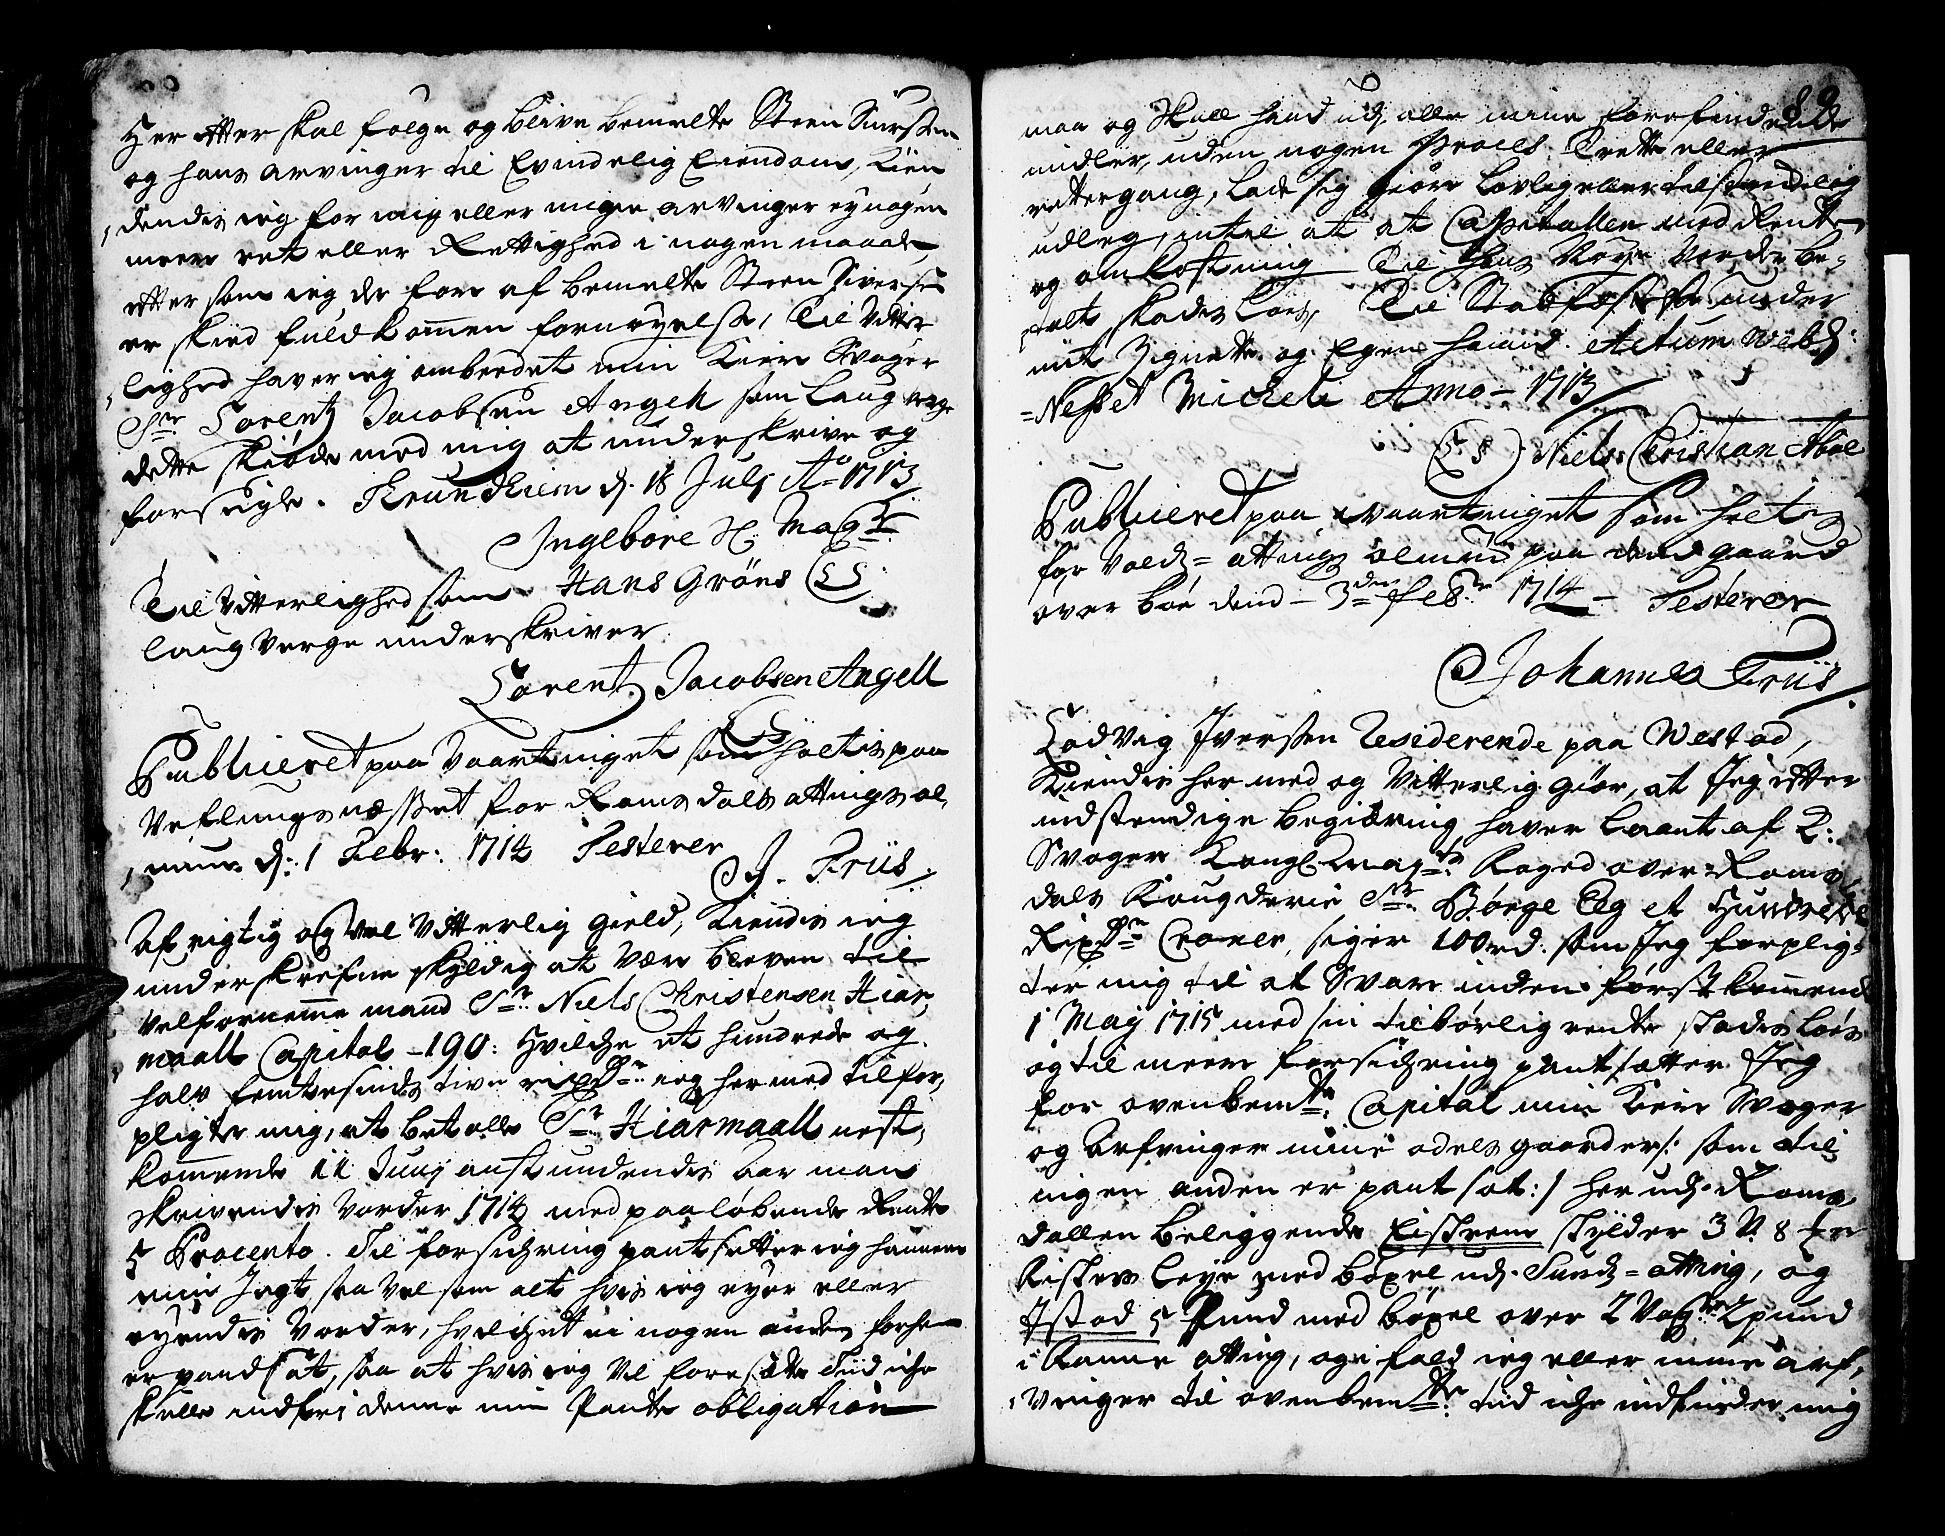 Her efter skal følge og blive bemelte Steen Siversen
og hans arvinger til Evindelig Eiendom, Kien
dendis ieg for mig eller mine arvinger ey nogen
meere ret eller Rettighed i nogen maade,
efter som ieg der fore af bemelte Steen Siversen
er skied fuldkommen fornøyelse, Til Vitter
lighed haver ieg ombeedet min Kiere Svoger
Sr. Lorentz Jacobsen Angell som Laug verge
dette skiøde med mig at underskrive og
forseigle. Trundhiem d. 18 July Ao 1713
Ingebore Sl. Mag:
Til Vitterlighed som Hans Gröns (LS)
laug Verge underskriver
Lorentz Jacobsen Angell
(LS)
Publiceret paa Vaartinget som holtes paa
Veblungsnæsset for Romsdals attings al,
mue d: 1 Febr: 1714 Testerer
J. Friis
Af rigtig og Vel Vitterlig gield, Kiendis ieg
underskrefne skyldig at Være bleven til
velfornemme mand Sr. Niels Christensen Hiar,
maall Capital - 190: Hvilche et hundrede og
halv femtesinds tive rixdr. ieg her med tilfor,
pligter mig, at betalle Sr. Hiarmaall nest,
kommende 11 Juny anstundendis Aar man
skrivendis Vorder 1714 med paaløbende Rente
5 Procento. Til forsichring pantsetter ieg hannem
min Jegt saa Vel som alt hvis ieg eyer eller
eyendis Vorder, hvilchet ei nogen anden forhen
er pandsat, saa at hvis ieg Vil foresatte Tiid iche
skulle indfri denne min Pante obligation

maa og skall hand udj alle mine forefindende
midler, uden nogen Proces Trette eller
rettergang, lade sig giøre lovlig eller tilstrechelig
udleg, intil at at Capitallen med Rente
og omkostning Til hans Nøye Vorder be-
talt skadesløes, Til Stadfestelse under
mit Zignette og Egen haand. Actum Webl:
-Nesset Micheli Anno - 1713
(LS) Niels Christian Aboe
Publiceret paa waartinget som holtes
for Vold- attings olmue paa gaard
over boe dend - 3den Febr. 1714 - Testerer
Johannes Friis
Lodvig Iversen Residerende paa Westad,
Kiendis her med og Vitterlig giør, at Jeg efter
indstendige begiæring haver laant af K:
Svoger Kongl. Mayts Foged over Roms
dals Fougderie Sr. Börge Eeg et Hundrede
Rixdr. Croner, siger 100 rd. som Jeg forplig-
ter mig til at Svare inden først kommende
1 May 1715 med sin tilbørlig rente skadesløes
og til meere forsichring pantsætter Jeg
for ovenbemte. Capital min Kiere Svoger
og Arfvinger mine odels gaarder /: som til
ingen anden er pantsat:/ her udj Roms
dallen beliggende Eistrem skylder 3 V. 8
Fiskers leye med bøxel udj Sunds-otting, og
Istad 5 Pund med bøxel over 2 Vog 2 pund
i Banne otting, og i fald ieg eller mine arf,
vinger til ovenbemte. tiid iche indfinder mig